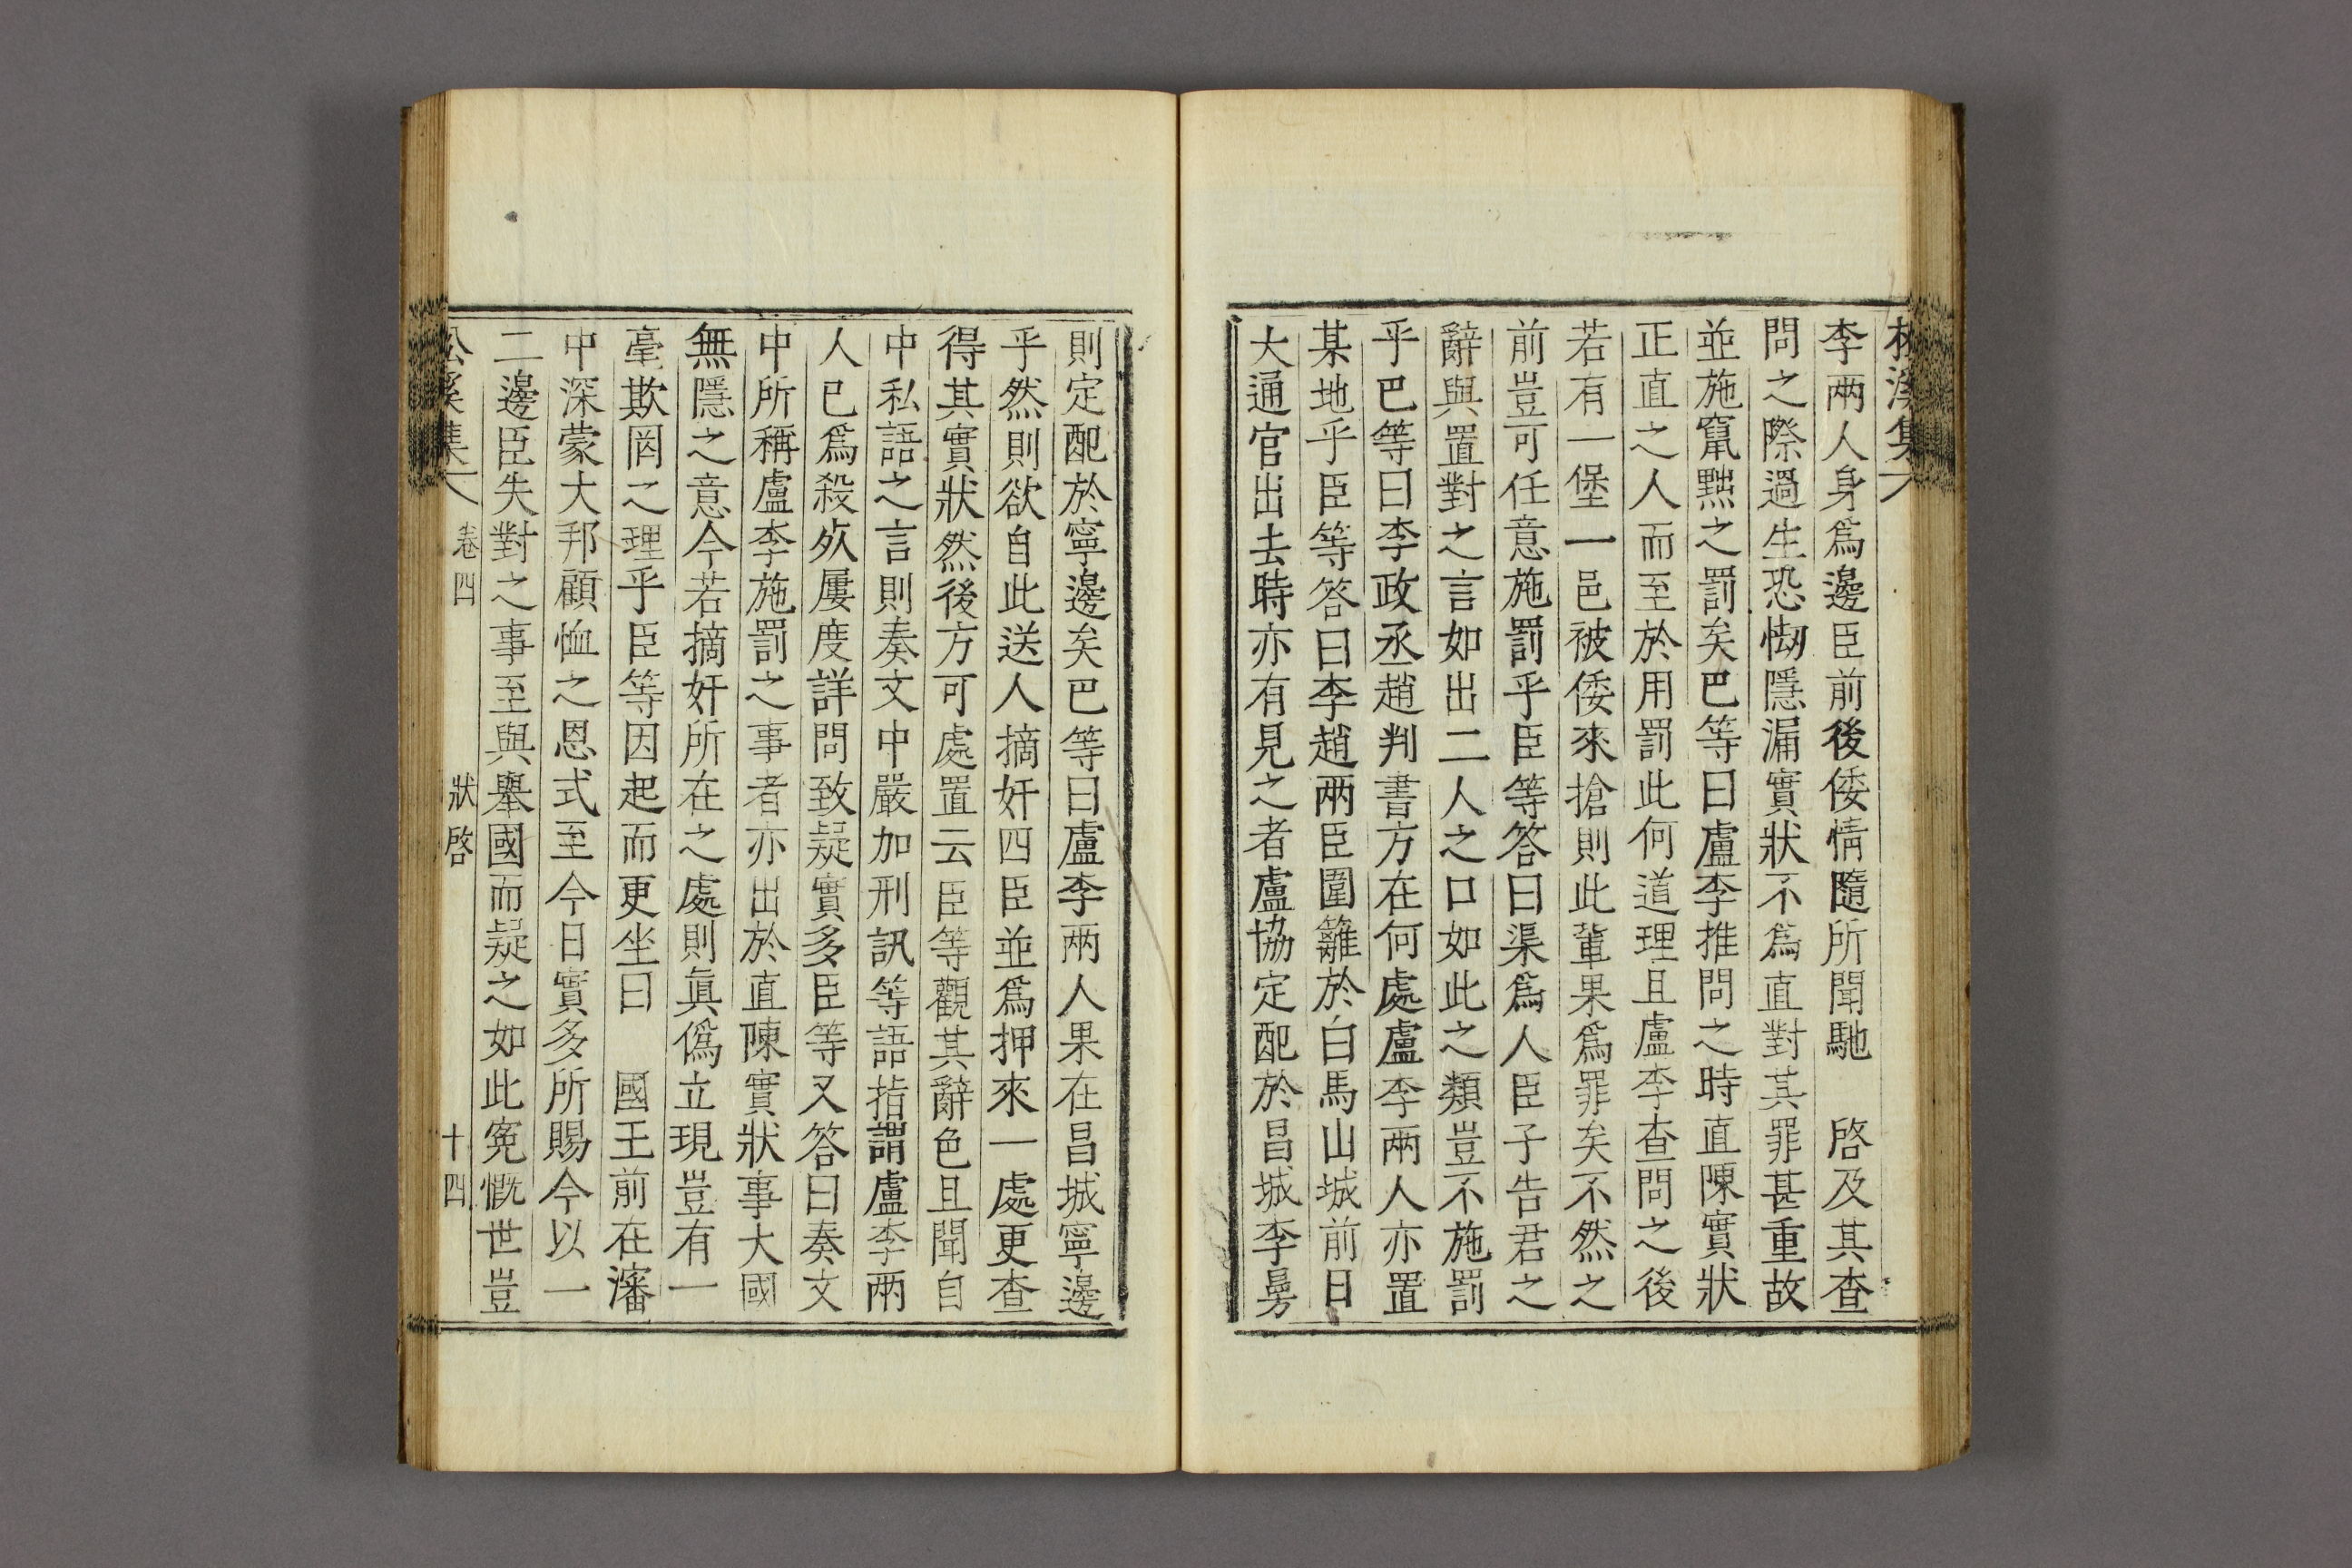 李兩人身爲邊臣前後倭情隨所聞馳　啓及其查
問之際過生恐㤼隱漏實狀不爲直對其罪甚重故
並施竄黜之罰矣巴等曰盧李推問之時直陳實狀
正直之人而至於用罰此何道理且盧李查問之後
若有一堡一邑被倭來搶則此輩果爲罪矣不然之
前豈可任意施罰乎臣等答曰渠爲人臣子告君之
辭與置對之言如出二人之口如此之類豈不施罰
乎巴等曰李政丞趙判書方在何處盧李兩人亦置
某地乎臣等答曰李趙兩臣圍籬於白馬山城前日
大通官出去時亦有見之者盧協定配於昌城李㬅
則定配於寧邊矣巴等曰盧李兩人果在昌城寧邊
乎然則欲自此送人摘奸四臣並爲押來一處更查
得其實狀然後方可處置云臣等觀其辭色且聞自
中私語之言則奏文中嚴加刑訊等語指謂盧李兩
人已爲殺死屢度詳問致疑實多臣等又答曰奏文
中所稱盧李施罰之事者亦出於直陳實狀事大國
無隱之意今若摘奸所在之處則眞僞立現豈有一
毫欺罔之理乎臣等因起而更坐曰　國王前在瀋
中深蒙大邦顧恤之恩式至今日實多所賜今以一
二邊臣失對之事至與擧國而疑之如此寃慨世豈
卷四　狀啓　十四